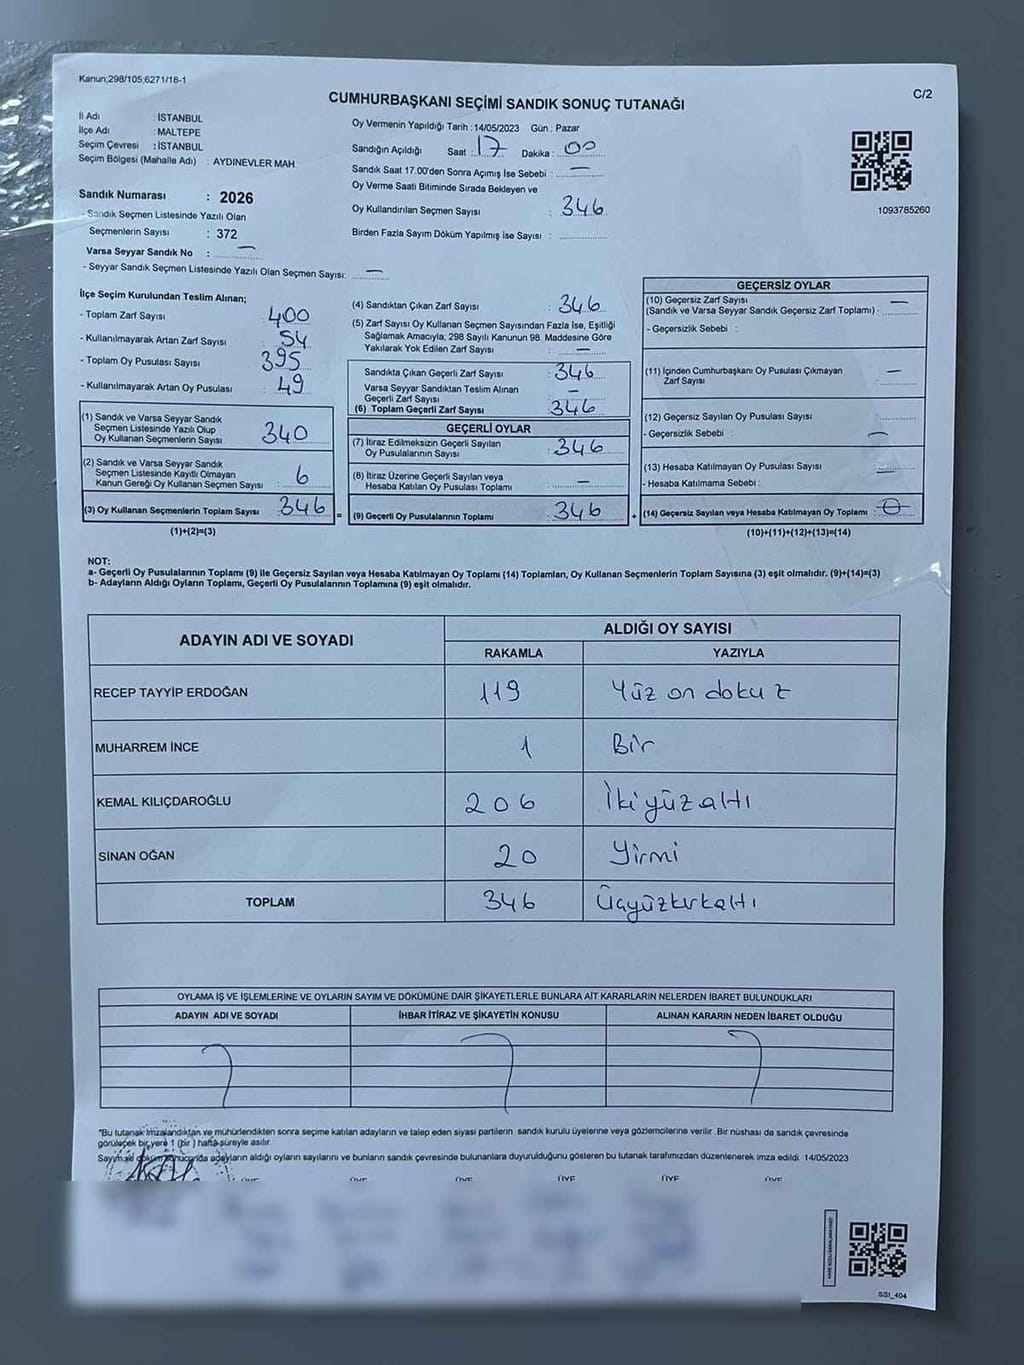 Kanun;298/105;6271/18-1
C/2
CUMHURBAŞKANI SEÇİMİ SANDIK SONUÇ TUTANAĞI
İl Adı : İSTANBUL
İlçe Adı : MALTEPE
Seçim Çevresi : İSTANBUL
Seçim Bölgesi (Mahalle Adı) : AYDINEVLER MAH.
Sandık Numarası : 2026
- Sandık Seçmen Listesinde Yazılı Olan
Seçmenlerin Sayısı : 372
Varsa Seyyar Sandık No : —
- Seyyar Sandık Seçmen Listesinde Yazılı Olan Seçmen Sayısı: —
Oy Vermenin Yapıldığı Tarih : 14/05/2023 Gün : Pazar
Sandığın Açıldığı Saat : 17 Dakika : 00
Sandık Saat 17.00'den Sonra Açımış İse Sebebi : —
Oy Verme Saati Bitiminde Sırada Bekleyen ve
Oy Kullandırılan Seçmen Sayısı : 346
Birden Fazla Sayım Döküm Yapılmış ise Sayısı :
1093785260
İlçe Seçim Kurulundan Teslim Alınan;
- Toplam Zarf Sayısı : 400
- Kullanılmayarak Artan Zarf Sayısı : 54
- Toplam Oy Pusulası Sayısı : 395
- Kullanılmayarak Artan Oy Pusulası : 49
(1) Sandık ve Varsa Seyyar Sandık
Seçmen Listesinde Yazılı Olup
Oy Kullanan Seçmenlerin Sayısı : 340
(2) Sandık ve Varsa Seyyar Sandık
Seçmen Listesinde Kayıtlı Olmayan
Kanun Gereği Oy Kullanan Seçmen Sayısı : 6
(3) Oy Kullanan Seçmenlerin Toplam Sayısı : 346
(1)+(2)=(3)
(4) Sandıktan Çıkan Zarf Sayısı : 346
(5) Zarf Sayısı Oy Kullanan Seçmen Sayısından Fazla İse, Eşitliği
Sağlamak Amacıyla; 298 Sayılı Kanunun 98. Maddesine Göre
Yakılarak Yok Edilen Zarf Sayısı : —
Sandıkta Çıkan Geçerli Zarf Sayısı : 346
Varsa Seyyar Sandıktan Teslim Alınan
Geçerli Zarf Sayısı : —
(6) Toplam Geçerli Zarf Sayısı : 346
GEÇERLİ OYLAR
(7) İtiraz Edilmeksizin Geçerli Sayılan
Oy Pusulalarının Sayısı : 346
(8) İtiraz Üzerine Geçerli Sayılan veya
Hesaba Katılan Oy Pusulası Toplamı : —
= (9) Geçerli Oy Pusulalarının Toplamı : 346
GEÇERSİZ OYLAR
(10) Geçersiz Zarf Sayısı
(Sandık ve Varsa Seyyar Sandık Geçersiz Zarf Toplamı) : —
- Geçersizlik Sebebi :
(11) İçinden Cumhurbaşkanı Oy Pusulası Çıkmayan
Zarf Sayısı : —
(12) Geçersiz Sayılan Oy Pusulası Sayısı :
- Geçersizlik Sebebi : —
(13) Hesaba Katılmayan Oy Pusulası Sayısı : —
- Hesaba Katılmama Sebebi :
+ (14) Geçersiz Sayılan veya Hesaba Katılmayan Oy Toplamı : 0
(10)+(11)+(12)+(13)=(14)
NOT:
a- Geçerli Oy Pusulalarının Toplamı (9) ile Geçersiz Sayılan veya Hesaba Katılmayan Oy Toplamı (14) Toplamları, Oy Kullanan Seçmenlerin Toplam Sayısına (3) eşit olmalıdır. (9)+(14)=(3)
b- Adayların Aldığı Oyların Toplamı, Geçerli Oy Pusulalarının Toplamına (9) eşit olmalıdır.
ADAYIN ADI VE SOYADI ALDIĞI OY SAYISI
RAKAMLA YAZIYLA
RECEP TAYYİP ERDOĞAN 119 Yüz on dokuz
MUHARREM İNCE 1 Bir
KEMAL KILIÇDAROĞLU 206 İkiyüzaltı
SİNAN OĞAN 20 Yirmi
TOPLAM 346 Üçyüzkırkaltı
OYLAMA İŞ VE İŞLEMLERİNE VE OYLARIN SAYIM VE DÖKÜMÜNE DAİR ŞİKAYETLERLE BUNLARA AİT KARARLARIN NELERDEN İBARET BULUNDUKLARI
ADAYIN ADI VE SOYADI İHBAR İTİRAZ VE ŞİKAYETİN KONUSU ALINAN KARARIN NEDEN İBARET OLDUĞU
"Bu tutanak imzalandıktan ve mühürlendikten sonra seçime katılan adayların ve talep eden siyasi partilerin sandık kurulu üyelerine veya gözlemcilerine verilir. Bir nüshası da sandık çevresinde
görülecek bir yere 1 (bir) hafta süreyle asılır.
Sayım ve döküm sonucunda adayların aldığı oyların sayılarını ve bunların sandık çevresinde bulunanlara duyurulduğunu gösteren bu tutanak tarafımızdan düzenlenerek imza edildi. 14/05/2023
ÜYE ÜYE ÜYE ÜYE ÜYE ÜYE
SSI_404